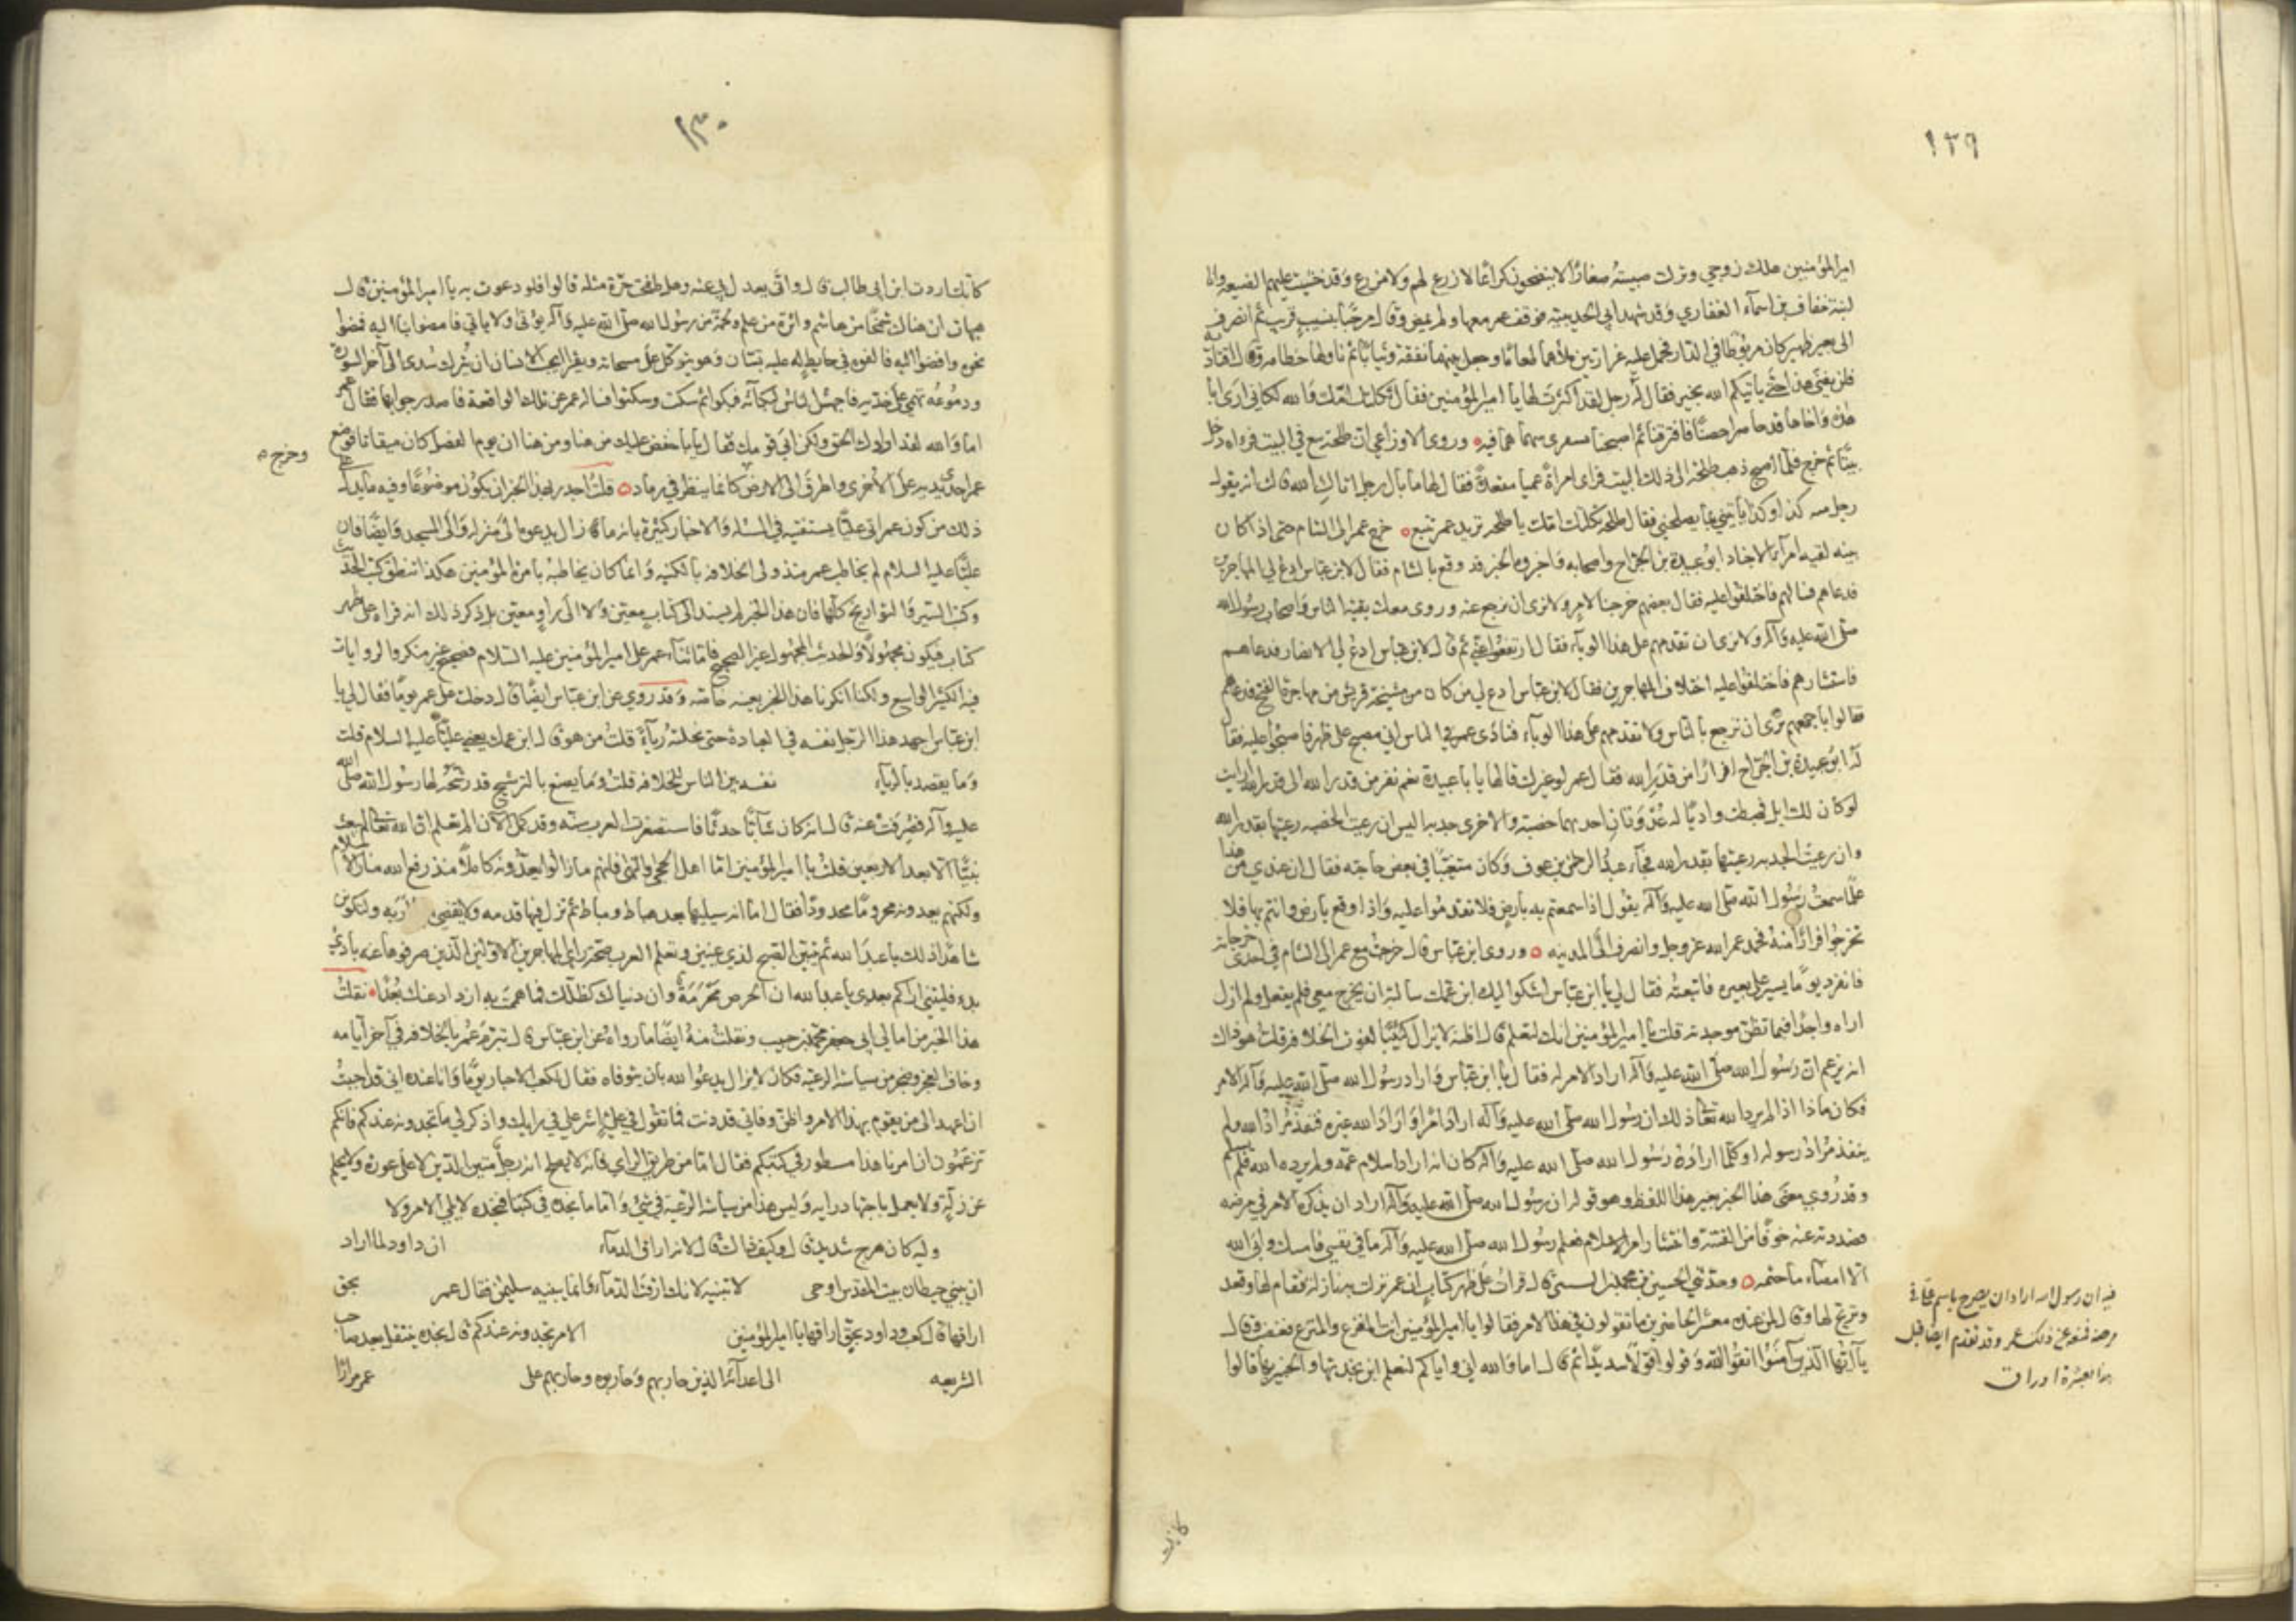 ١٢٩
امير المؤمنين هلك زوجي وترك صبية صغارا لا ينضجون كراعا لا زرع لهم ولا ضرع وقد خشيت عليهم الضيعة وانا
ابنة خفاف بن اسماء الغفاري وقد شهد ابي الحديبية فوقف عمر معها ولم يمض وقال مرحبا بنسب قريب ثم انصرف
الى بعير ظهير كان مربوطا في الدار فحمل عليه غرارتين ملأهما طعاما وجعل بينهما نفقة وثيابا ثم ناولها خطامه وقال اقتاديه
فلن يفنى هذا حتى يأتيكم الله بخير فقال له رجل لقد اكثرت لها يا امير المؤمنين فقال ثكلتك امك والله لكاني ارى ابا
هذه واخاها قد حاصرا حصنا فافتتحاه ثم اصبحنا نستقري سهما هما فيه وروى الاوزاعي ان طلحة تبع في البيت فراه دخل
بيتا ثم خرج فلما اصبح ذهب طلحة الى ذلك البيت فراى امراة عمياء مقعدة فقال لها ما بال رجل اتاك الليلة قالت انه يقول
رجل منه كذا وكذا يأتيني بما يصلحني فقال طلحة ثكلتك امك يا طلحة تريد عمر تتبع خرج عمر الى الشام حتى اذا كان
ببعضه لقيه امراء الاجناد ابو عبيدة بن الجراح واصحابه واخبروه الخبر قد وقع بالشام فقال لابن عباس ادع لي المهاجرين
فدعاهم فسالهم فاختلفوا عليه فقال بعضهم خرجنا لامر ولا نرى ان نرجع عنه وروى معك بقية الناس واصحاب رسول الله
صلى الله عليه وآله ولا نرى ان تقدمهم على هذا الوباء فقال ارتفعوا عني ثم قال لابن عباس ادع لي الانصار فدعاهم
فاستشارهم فاختلفوا عليه اختلاف المهاجرين فقال لابن عباس ادع لي من كان من مشيخة قريش من مهاجرة الفتح فدعاهم
فقالوا باجمعهم نرى ان ترجع بالناس ولا تقدمهم على هذا الوباء فنادى عمر في الناس اني مصبح على ظهر فاصبحوا عليه فقال
له ابو عبيدة بن الجراح افرارا من قدر الله فقال عمر لو غيرك قالها يا با عبيدة نعم نفر من قدر الله الى قدر الله ارايت
لو كان لك ابل فهبطت واديا له عدوتان احديهما خصبة والاخرى جدبة اليس ان رعيت الخصبة رعيتها بقدر الله
وان رعيت الجدبة رعيتها بقدر الله فجاء عبد الرحمن بن عوف وكان متغيبا في بعض حاجته فقال ان عندي من هذا
علما سمعت رسول الله صلى الله عليه وآله يقول اذا سمعتم به بارض فلا تقدموا عليه واذا وقع بارض وانتم بها فلا
تخرجوا فرارا منه فحمد عمر الله عز وجل وانصرف الى المدينة وروى ابن عباس قال خرجت مع عمر الى الشام في احدى خرجاته
فانفرد يوما يسير على بعيره فاتبعته فقال لي يا ابن عباس اشكو اليك ابن عمك سالته ان يخرج معي فلم يفعل ولم ازل
اراه واجدا فيما تظن موجدته قلت يا امير المؤمنين انك لتعلم قال اظنه لا يزال كئيبا لفوت الخلافة قلت هو ذاك
انه يزعم ان رسول الله صلى الله عليه وآله اراد الامر له فقال يا ابن عباس واراد رسول الله صلى الله عليه وآله الامر له
فكان ماذا اذا لم يرد الله تعالى ذلك ان رسول الله صلى الله عليه وآله اراد امرا واراد الله غيره فنفذ مراد الله ولم
ينفذ مراد رسوله او كلما اراده رسول الله صلى الله عليه وآله كان انه اراد اسلام عمه ولم يرده الله فلم يسلم
وقد روي معنى هذا الخبر بغير هذا اللفظ وهو قوله ان رسول الله صلى الله عليه وآله اراد ان يذكره للامر في مرضه
فصددته عنه خوفا من الفتنة وانتشار امر الاسلام فعلم رسول الله صلى الله عليه وآله ما في نفسي فامسك وابى الله
الا امضاء ما حتمه وحدثني الحسين بن محمد السيني قال قرات على ظهر كتاب ان عمر نزلت به نازلة فقام لها وقعد
وترنح لها وقال لمن عنده معشر الحاضرين ما تقولون في هذا الامر فقالوا يا امير المؤمنين انت المفزع والمنزع فغضب وقال
يا ايها الذين آمنوا اتقوا الله وقولوا قولا سديدا ثم قال اما والله اني واياكم لنعلم ابن بجدتها والخبير بها قالوا
فيه ان رسول الله اراد ان يصرح باسم علي في
مرضه فمنعه عن ذلك عمر وقد تقدم ايضا قبل
هذا بعشرة اوراق
كانك
١٣٠
كانك اردت ابن ابي طالب قال وانى يعدل بي عنه وهل طفحت حرة مثله قالوا فلو دعوت به يا امير المؤمنين قال
هيهات ان هناك شمخا من هاشم واثرة من علم ولحمة من رسول الله صلى الله عليه وآله يؤتى ولا ياتي فامضوا بنا اليه فمضوا
نحوه وافضوا اليه فالفوه في حايط له عليه تبان وهو يتوكل على مسحاته ويقرا ايحسب الانسان ان يترك سدى الى آخر السورة
ودموعه تهمي على خديه فاجهش الناس لبكائه فبكوا ثم سكت وسكتوا فساله عمر عن تلك الواقعة فاصدر جوابها فقال عمر
اما والله لقد ارادك الحق ولكن ابى قومك فقال يا با حفص خفض عليك من هنا ومن هنا ان يوم الفصل كان ميقاتا فوضع
وخرج
عمر احدى يديه على الاخرى واطرق الى الارض كانما ينظر في رماد قلت اجدر بهذا الخبر ان يكون موضوعا وفيه ما يدل على
ذلك من كون عمر اتى عليا يستفتيه في المسئلة والاخبار كثيرة بانه ما زال يدعوه الى منزله والى المسجد وايضا فان
عليا عليه السلام لم يخاطب عمر منذ ولي الخلافة بالكنية وانما كان يخاطبه بامرة المؤمنين هكذا تنطق كتب الحديث
وكتب السير والتواريخ كلها فان هذا الخبر لم يسند الى كتاب معين ولا الى راو معين بل ذكر ذلك انه قراه على ظهر
كتاب فيكون مجهولا والحديث المجهول غير الصحيح فاما ثناء عمر على امير المؤمنين عليه السلام فصحيح غير منكر والروايات
فيه الكثير الواسع ولكنا انكرنا هذا الخبر بعينه خاصة وقد روي عن ابن عباس ايضا قال دخلت على عمر يوما فقال لي يا
ابن عباس اجهد هذا الرجل نفسه في العبادة حتى نحلته رياء قلت من هو قال ابن عمك يعني عليا عليه السلام قلت
وما يقصد بالرياء نفسه بين الناس للخلافة قلت وما يصنع بالترشيح قد رشحه لها رسول الله صلى الله
عليه وآله فصرفت عنه قال انه كان شابا حدثا فاستصغرت العرب سنه وقد كمل الآن الم تعلم ان الله تعالى لم يبعث
نبيا الا بعد الاربعين قلت يا امير المؤمنين اما اهل الحجى والنهى فانهم ما زالوا يعدونه كاملا منذ رفع الله منار الاسلام
ولكنهم يعدونه محروما محدودا فقال اما انه سيليها بعد هياط ومياط ثم تزل فيها قدمه ولا يقضي اربه ولتكونن
شاهدا ذلك يا عبد الله ثم يتبين الصبح لذي عينين وتعلم العرب صحة راي المهاجرين الاولين الذين صرفوها عنه بادئ
بدء فليتني اراكم بعدي يا عبد الله ان الحرص محرمة وان دنياك كظلك كلما هممت به ازداد عنك بعدا نقلت
هذا الخبر من امالي ابي جعفر محمد بن حبيب ونقلت منه ايضا ما رواه عن ابن عباس قال تبرم عمر بالخلافة في آخر ايامه
وخاف العجز وضجر من سياسة الرعية فكان لا يزال يدعو الله بان يتوفاه فقال لكعب الاحبار يوما وانا عنده اني قد احببت
ان اعهد الى من يقوم بهذا الامر واظن وفاتي قد دنت فما تقول في علي اشر علي في رايك واذكر لي ما تجدونه عندكم فانكم
تزعمون ان امرنا هذا مسطور في كتبكم فقال اما من طريق الراي فانه لا يصلح انه رجل متين الدين لا يغضي على عورة ولا يحلم
عن زلة ولا يعمل باجتهاد رايه وليس هذا من سياسة الرعية في شيء واما ما نجده في كتبنا فنجده لا يلي الامر ولا
وليه كان هرج شديد قال وكيف ذاك قال لانه اراق الدماء ان داود لما اراد
ان يبني حيطان بيت المقدس اوحى لا تبنيه لانك ارقت الدماء وانما يبنيه سليمن فقال عمر بحق
اراقها قال كعب وداود بحق اراقها يا امير المؤمنين الامر تجدونه عندكم قال نجده ينتقل بعد صاحب
الشريعة الى اعدائه الذين حاربهم وحاربوه وحاربهم على عمر مرارا